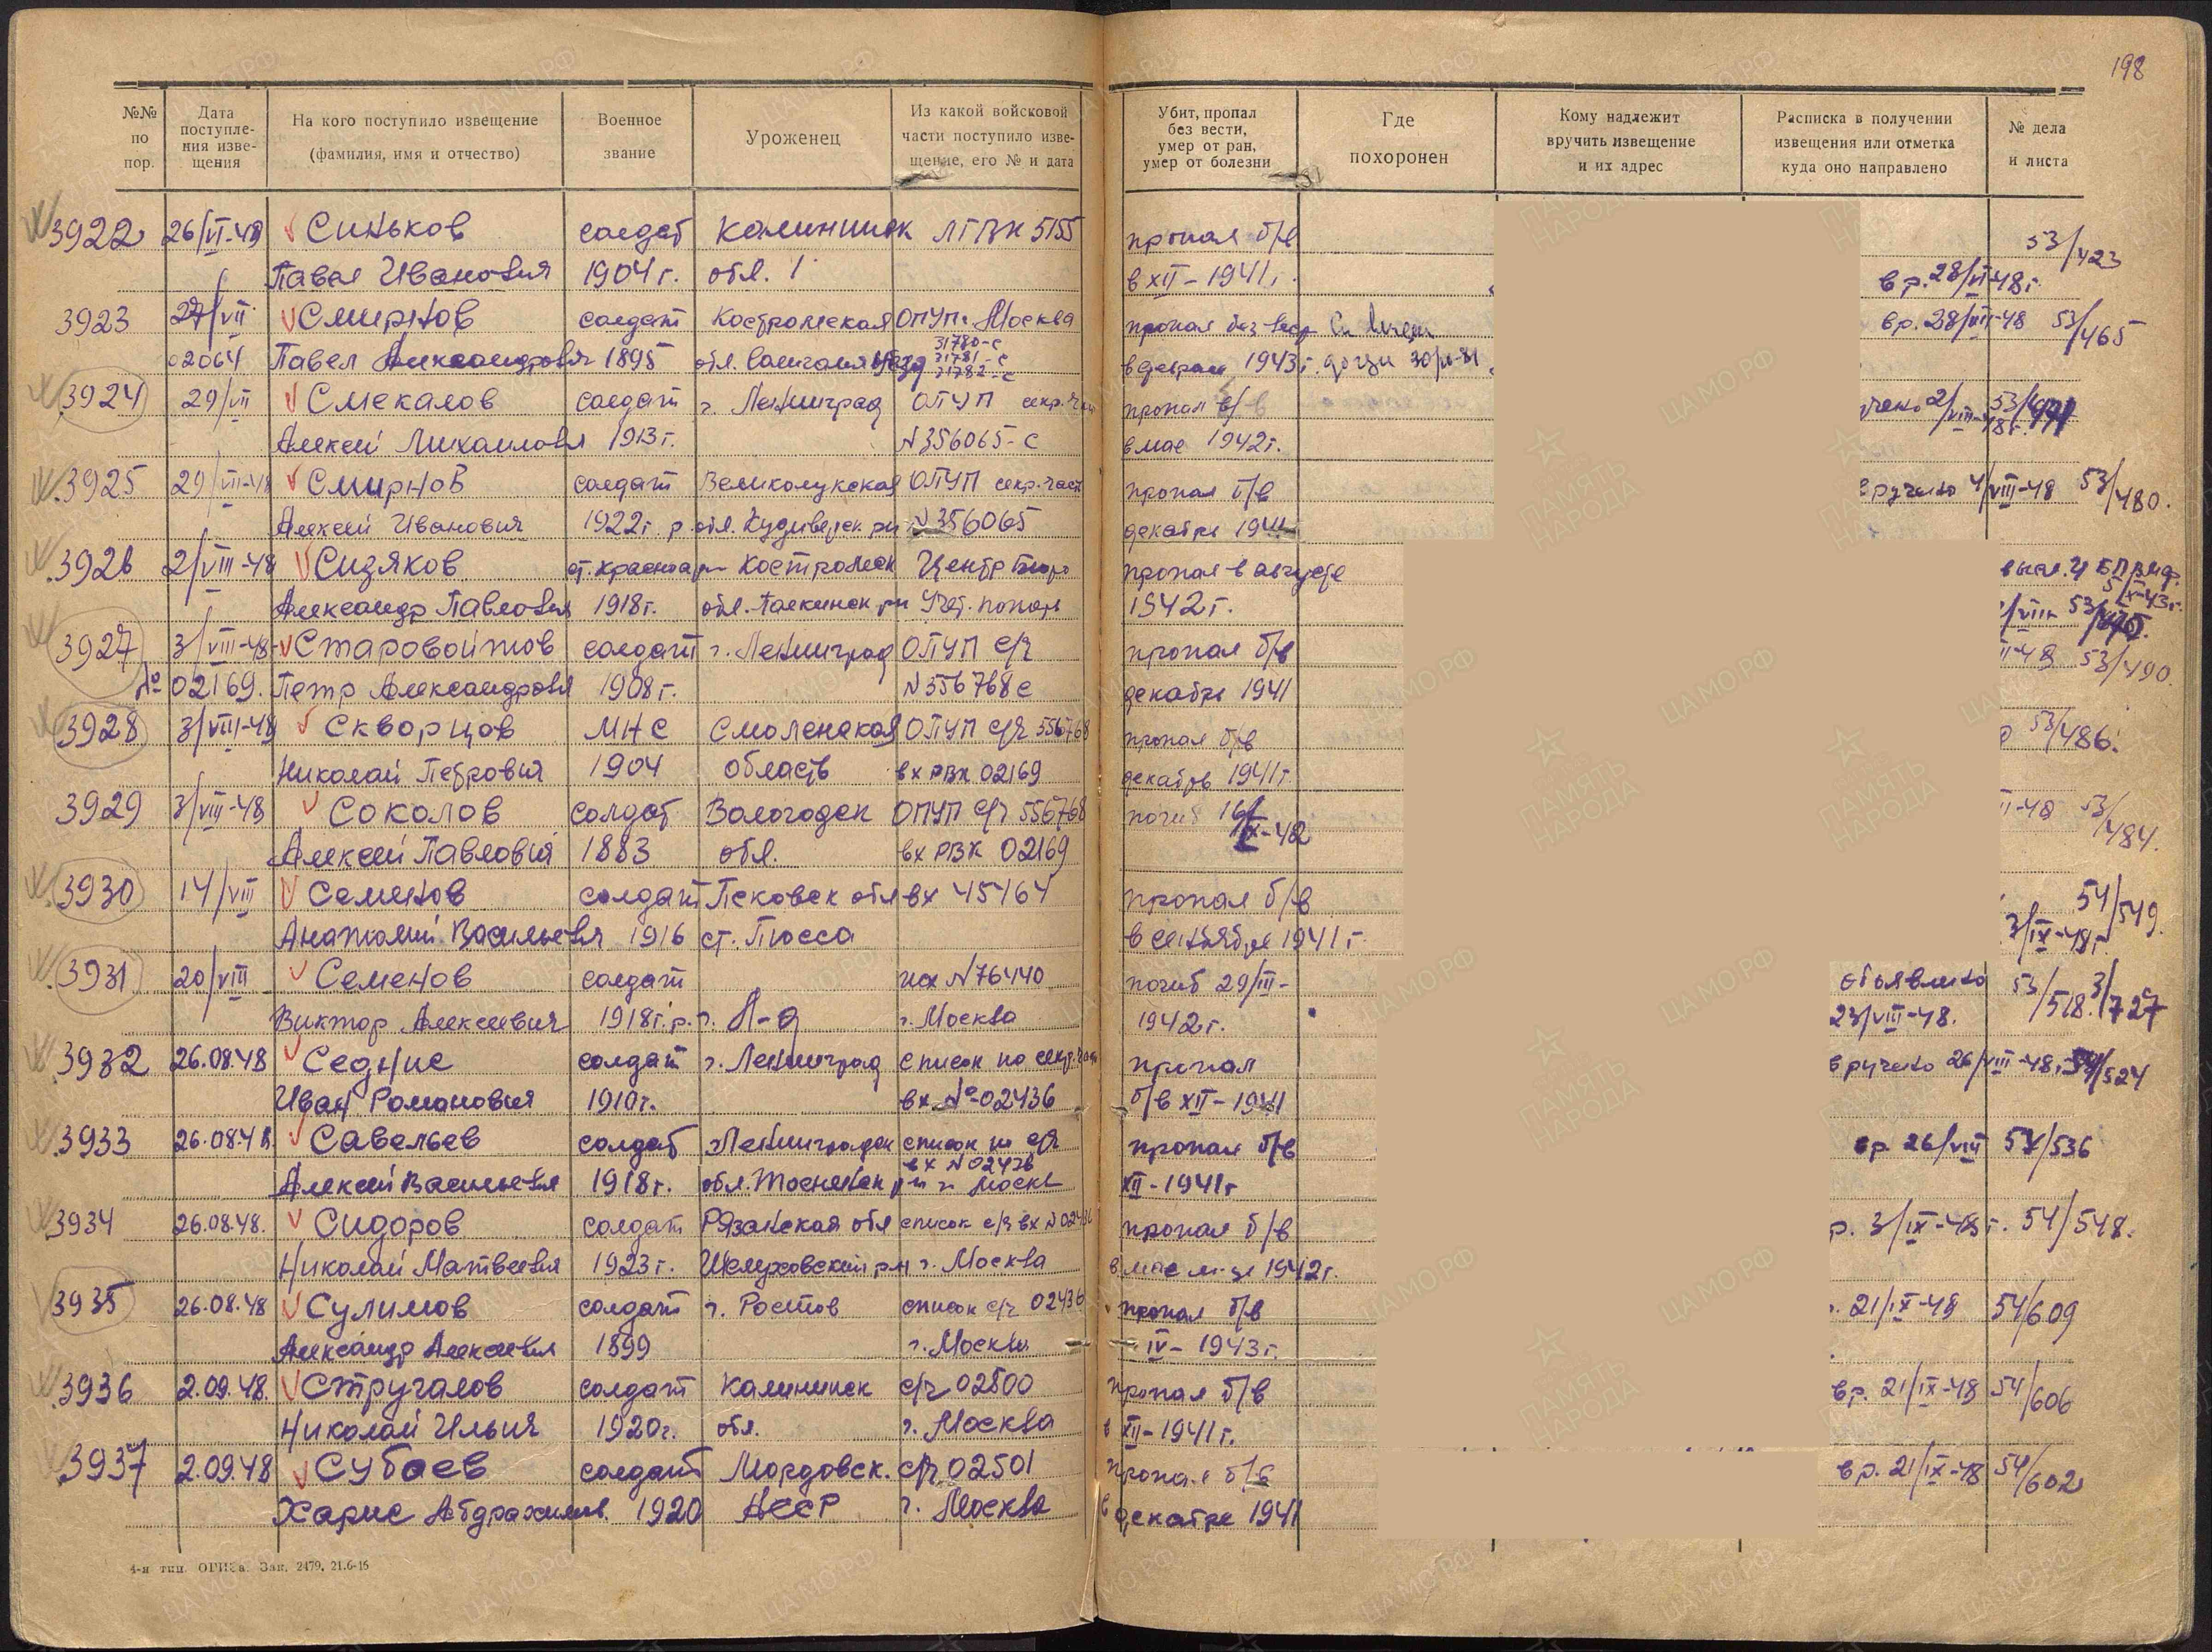 198
№№ по пор.
Дата поступле-ния изве-щения
На кого поступило извещение (фамилия, имя и отчество)
Военное звание
Уроженец
Из какой войсковой части поступило изве-щение, его № и дата
Убит, пропал без вести, умер от ран, умер от болезни
Где похоронен
Кому надлежит вручить извещение и их адрес
Расписка в получении извещения или отметка куда оно направлено
№ дела и листа
3922 26/VI-48 Синьков солдат Калининск 5155 пропал б/в 53/423
Павел Иванович 1904 г. обл. в XII-1941 г. вр. 28/VI-48 г.
3923 27/VII Смирнов солдат Костромская ОПУП г. Москва пропал без вест вр. 28/VII-48 53/465
02064 Павел Александрович 1895 обл. 31780-с 31781-с 31782-с в феврале 1943 г.
3924 29/VII Смекалов солдат г. Ленинград ОПУП секр. пропал б/в
Алексей Михайлович 1913 г. N 356065-с в мае 1942 г.
3925 29/VII-48 Смирнов солдат Великолукская ОПУП секр. част пропал б/в вручено 4/VIII-48 53/480.
Алексей Иванович 1922 г. р. обл. N 356065 декабре 1941
3926 2/VIII-48 Сизяков ст. красноар Костромск Центр Бюро пропал в августе
Александр Павлович 1918 г. обл. 1942 г.
3927 3/VIII-48 Старовойтов солдат г. Ленинград ОПУП с/ч пропал б/в 53/490.
№ 02169. Петр Александрович 1908 г. N 556768 с декабре 1941
3928 3/VIII-48 Скворцов МНС Смоленская ОПУП с/ч 556768 пропал б/в 53/486.
Николай Петрович 1904 область вх РВК 02169 декабрь 1941 г.
3929 3/VIII-48 Соколов солдат Вологодск ОПУП с/ч 556768 погиб 16/IX-42 53/484.
Алексей Павлович 1883 обл. вх РВК 02169
3930 14/VIII Семенов солдат Псковск обл вх 45464 пропал б/в 54/549.
Анатолий Васильевич 1916 ст. Плюсса в сентябре 1941 г. 3/IX-48 г.
3931 20/VIII Семенов солдат исх N 76440 погиб 29/III- объявлено 53/518.
Виктор Алексеевич 1918 г. р. г. Л-д г. Москва 1942 г. 23/VIII-48.
3932 26.08.48 Седние солдат г. Ленинград список по секр. пропал вручено 26/VIII-48 г. 54/524
Иван Романович 1910 г. вх. № 02436 б/в XII-1941
3933 26.08.48 Савельев солдат Ленинградск список по с/ч пропал б/в вр. 26/VIII 54/536
вх N 02436
Алексей Васильевич 1918 г. обл. Тосненск XII-1941 г
3934 26.08.48. Сидоров солдат Рязанская обл список с/ч вх N 02436 пропал б/в р. 3/IX-48 г. 54/548.
Николай Матвеевич 1923 г. Шелуховский р-н г. Москва в мае м-це 1942 г.
3935 26.08.48 Сулимов солдат г. Ростов список с/ч 02436 пропал б/в 21/IX-48 54/609
Александр Алексеевич 1899 г. Москва IV-1943 г.
3936 2.09.48. Стругалов солдат Калининск с/ч 02500 пропал б/в вр. 21/IX-48 54/606
Николай Ильич 1920 г. обл. г. Москва в XII-1941 г.
3937 2.09.48 Субаев солдат Мордовск. с/ч 02501 пропал б/в вр. 21/IX-48 54/602
Харис Абдрахим. 1920 АССР г. Москва в декабре 1941
4-я тип. ОГИЗа. Зак. 2479, 21.6-16